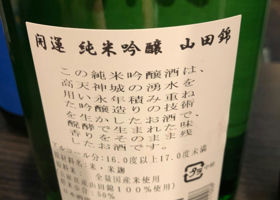 開運 純米吟醸 山田錦
この純米吟醸酒は、
高天神城の湧水を
用い永年積み重ね
た吟醸造りの技術
を生かしたお酒で、
醗酵で生まれた味
香をそのまま残
したお酒です。
アルコール分:16.0度以上17.0度未満
原材料名:米・米麹
全量国産米使用
山田錦100%使用)
50%